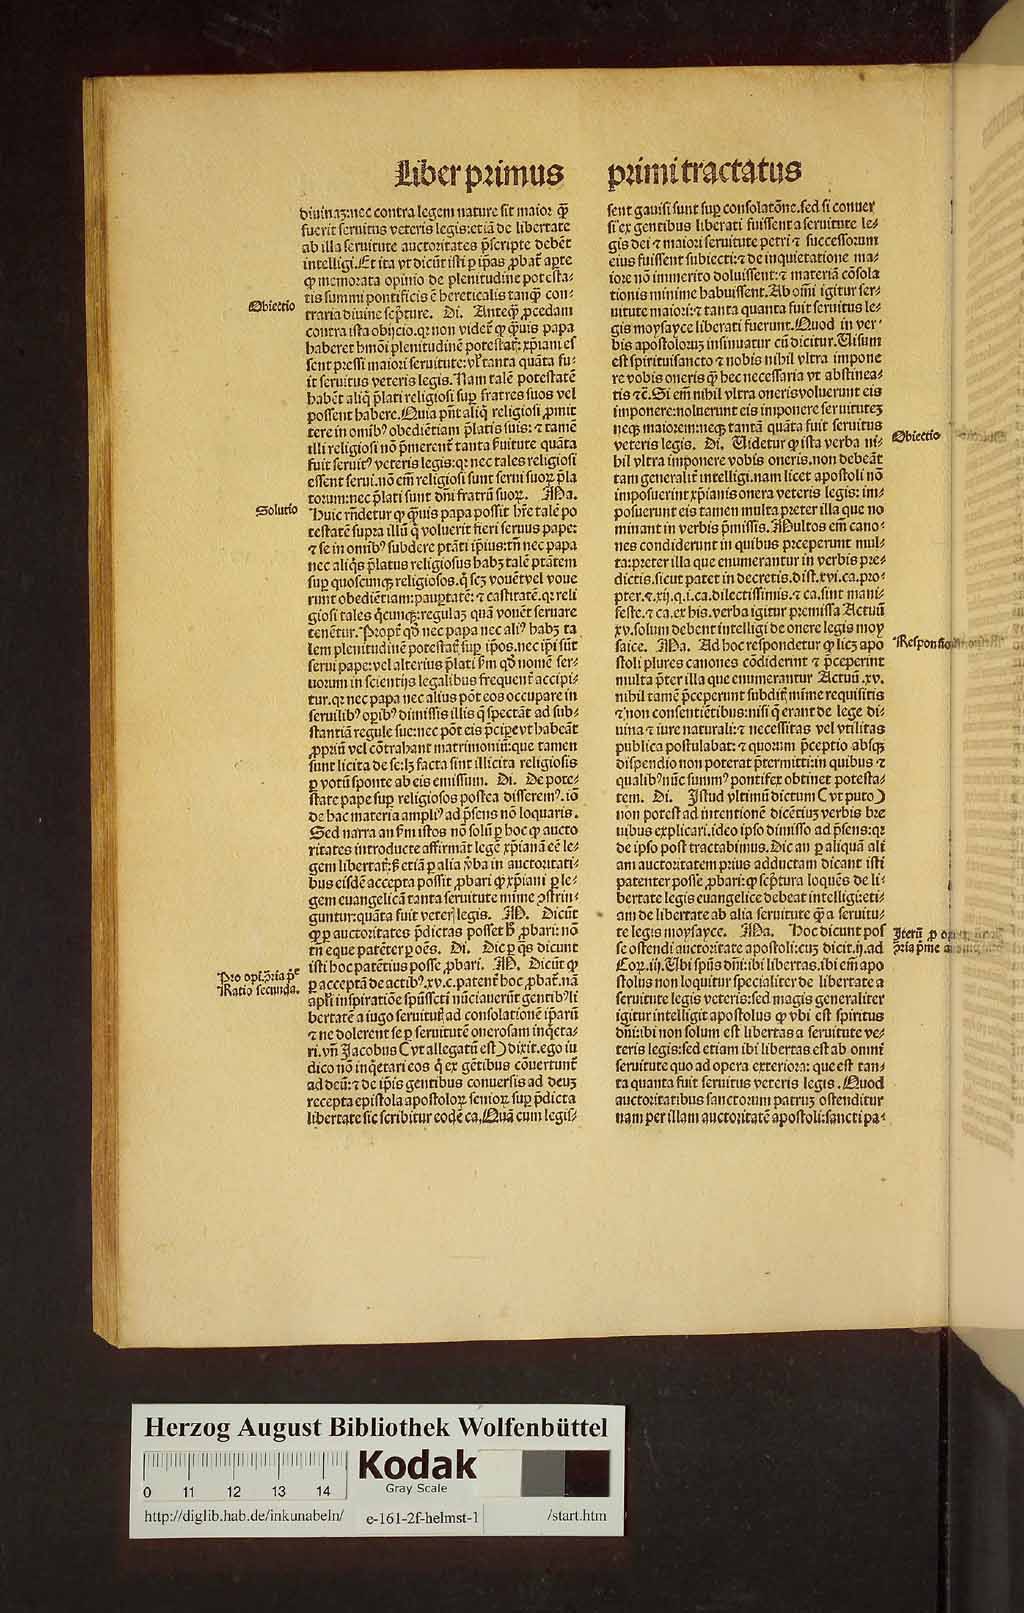 Liber primus primi tractatus
diuinaꝫ:nec contra legem nature sit maior ꝙ̃
fuerit seruitus veteris legis:etiā de libertate
ab illa seruitute auctoritates p̄scripte debēt
intelligi.Et ita vt dicūt isti ꝑ ip̄as ꝓbat̄ aꝑte
ꝙ memorata opinio de plenitudine potesta⸗
tis summi pontificis ē hereticalis tanꝙ̃ con⸗
Obiectio
traria diuine scp̄ture. Di. Anteꝙ̃ ꝓcedam
contra ista obijcio.qꝛ non videt̄ ꝙ ꝙ̃uis papa
haberet hmōi plenitudinē potestat̄: xp̄iani es
sent pressi maiori seruitute:vl̓ tanta quāta fu⸗
it seruitus veteris legis.Nam talē potestatē
habēt aliq̄ p̄lati religiosi suꝑ fratres suos vel
possent habere.Quia pn̄t aliq̄ religiosi ꝓmit
tere in omībꝰ obediētiam p̄latis suis: ⁊ tamē
illi religiosi nō p̄merent̄ tanta s̓uitute quāta
fuit seruitꝰ veteris legis:qꝛ nec tales religiosi
essent serui.nō em̄ religiosi sunt serui suoꝝ p̄la
torum:nec p̄lati sunt dn̄i fratrū suoꝝ. Ma.
Solutio
Huic rn̄detur ꝙ ꝙ̃uis papa possit hr̄e talē po
testatē supra illū q̄ voluerit fieri seruus pape:
⁊ se in omībꝰ subdere ptāti ip̄ius:tn̄ nec papa
nec aliq̄s p̄latus religiosus habꝫ talē ptātem
suꝑ quoscunqꝫ religiosos.q̄ scꝫ vouēt vel voue
runt obediētiam:pauꝑtatē: ⁊ castitatē.qꝛ reli
giosi tales q̄cunqꝫ:regulaꝫ quā vouēt seruare
tenētur.Propt̄ qd̓ nec papa nec aliꝰ habꝫ ta
lem plenitudinē potestat̄ suꝑ ip̄os.nec ip̄i sūt
serui pape:vel alterius p̄lati s̓m qd̓ nomē ser⸗
uorum in scientijs legalibus frequent̄ accipi⸗
tur.qꝛ nec papa nec alius pōt eos occupare in
seruilibꝰ oꝑibꝰ dimissis illis q̄ spectāt ad sub⸗
stantiā regule sue:nec pōt eis p̄ciꝑe vt habeāt
ꝓpriū vel cōtrahant matrimoniū:que tamen
sunt licita de se:lꝫ facta sint illicita religiosis
ꝑ votū sponte ab eis emissum. Di. De pote⸗
state pape suꝑ religiosos postea disseremꝰ.iō
de hac materia ampliꝰ ad p̄sens nō loquaris.
Sed narra an s̓m istos nō solū ꝑ hoc ꝙ aucto
ritates introducte affirmāt legē xp̄ianā eē le⸗
gem libertat̄:s̓ etiā ꝑ alia v̓ba in auctoritati⸗
bus eisdē accepta possit ꝓbari ꝙ xp̄iani ꝑ le⸗
gem euangelicā tanta seruitute mīme ꝯstrin⸗
guntur:quāta fuit veter̄ legis. M. Dicūt
ꝙ ꝑ auctoritates p̄dictas posset h̓ ꝓbari: nō
tn̄ eque patēter ꝑ oēs. Di. Dic ꝑ q̄s dicunt
isti hoc patētius posse ꝓbari. M. Dicūt ꝙ
Pro opi.ꝯ̄ria p̄e
Ratio secunda.
ꝑ acceptā de actibꝰ.xv.c.patent̄ hoc ꝓbat̄.nā
apl̓i inspiratiōe spūssctī nūciauerūt gentibꝰ li
bertatē a iugo seruitut̄ ad consolationē ip̄arū
⁊ ne dolerent se ꝑ seruitutē onerosam inq̄eta⸗
ri.vn̄ Jacobus (vt allegatū est) dixit.ego iu
dico nō inq̄etari eos q̄ ex gētibus cōuertunt̄
ad deū: ⁊ de ip̄is gentibus conuersis ad deuꝫ
recepta epistola apostoloꝝ senioꝝ suꝑ p̄dicta
libertate sic scribitur eodē ca.Quā cum legis⸗
sent gauisi sunt suꝑ consolatōne.sed si conuer
si ex gentibus liberati fuissent a seruitute le⸗
gis dei ⁊ maiori seruitute petri ⁊ successorum
eius fuissent subiecti: ⁊ de inquietatione ma⸗
iore nō immerito doluissent: ⁊ materiā cōsola
tionis minime habuissent.Ab omī igitur ser⸗
uitute maiori: ⁊ tanta quanta fuit seruitus le⸗
gis moysayce liberati fuerunt.Quod in ver⸗
bis apostoloruꝫ insinuatur cū dicitur.Uisum
est spirituisancto ⁊ nobis nihil vltra impone
re vobis oneris ꝙ̃ hec necessaria vt abstinea⸗
tis ⁊c̄.Si em̄ nihil vltra oneris voluerunt eis
imponere:noluerunt eis imponere seruituteꝫ
neqꝫ maiorem:neqꝫ tantā quāta fuit seruitus
Obiectio
veteris legis. Di. Uidetur ꝙ ista verba ni⸗
hil vltra imponere vobis oneris.non debeāt
tam generalit̄ intelligi.nam licet apostoli nō
imposuerint xp̄ianis onera veteris legis: im⸗
posuerunt eis tamen multa preter illa que no
minant in verbis p̄missis.Multos em̄ cano⸗
nes condiderunt in quibus preceperunt mul⸗
ta:preter illa que enumerantur in verbis pre⸗
dictis.sicut patet in decretis.dist.xvi.ca.pro⸗
pter. ⁊.xij.q.i.ca.dilectissimis. ⁊ ca.sint mani⸗
feste. ⁊ ca.ex his.verba igitur premissa Actuū
xv.solum debent intelligi de onere legis moy
Responsio
saice. Ma. Ad hoc respondetur ꝙ licꝫ apo
stoli plures canones cōdiderint ⁊ p̄ceperint
multa p̄ter illa que enumerantur Actuū.xv.
nihil tamē p̄ceperunt subdit̄ mīme requisitis
⁊ non consentiētibus:nisi q̄ erant de lege di⸗
uina ⁊ iure naturali: ⁊ necessitas vel vtilitas
publica postulabat: ⁊ quorum p̄ceptio absqꝫ
dispendio non poterat p̄termitti:in quibus ⁊
qualibꝰ nūc summꝰ pontifex obtinet potesta⸗
tem. Di. Istud vltimū dictum (vt puto)
non potest ad intentionē dicētiuꝫ verbis bre
uibus explicari.ideo ipso dimisso ad p̄sens:qꝛ
de ipso post tractabimus.Dic an ꝑ aliquā ali
am auctoritatem prius adductam dicant isti
patenter posse ꝓbari:ꝙ scp̄tura loquēs de li⸗
bertate legis euangelice debeat intelligi:eti⸗
am de libertate ab alia seruitute ꝙ̃ a seruitu⸗
Iterū ꝓ
ꝯ̄ria p̄me
te legis moysayce. Ma. Hoc dicunt pos
se ostendi auctoritate apostoli:cuꝫ dicit.ij.ad
Coꝝ.iij.Ubi spūs dn̄i:ibi libertas.ibi em̄ apo
stolus non loquitur specialiter de libertate a
seruitute legis veteris:sed magis generaliter
igitur intelligit apostolus ꝙ vbi est spiritus
dn̄i:ibi non solum est libertas a seruitute ve⸗
teris legis:sed etiam ibi libertas est ab omni
seruitute quo ad opera exteriora: que est tan⸗
ta quanta fuit seruitus veteris legis.Quod
auctoritatibus sanctorum patruꝫ ostenditur
nam per illam auctoritatē apostoli:sancti pa⸗
Herzog August Bibliothek Wolfenbüttel
Kodak
Gray Scale
0 11 12 13 14
http://diglib.hab.de/inkunabeln/ e-161-2f-helmst-1 /start.htm